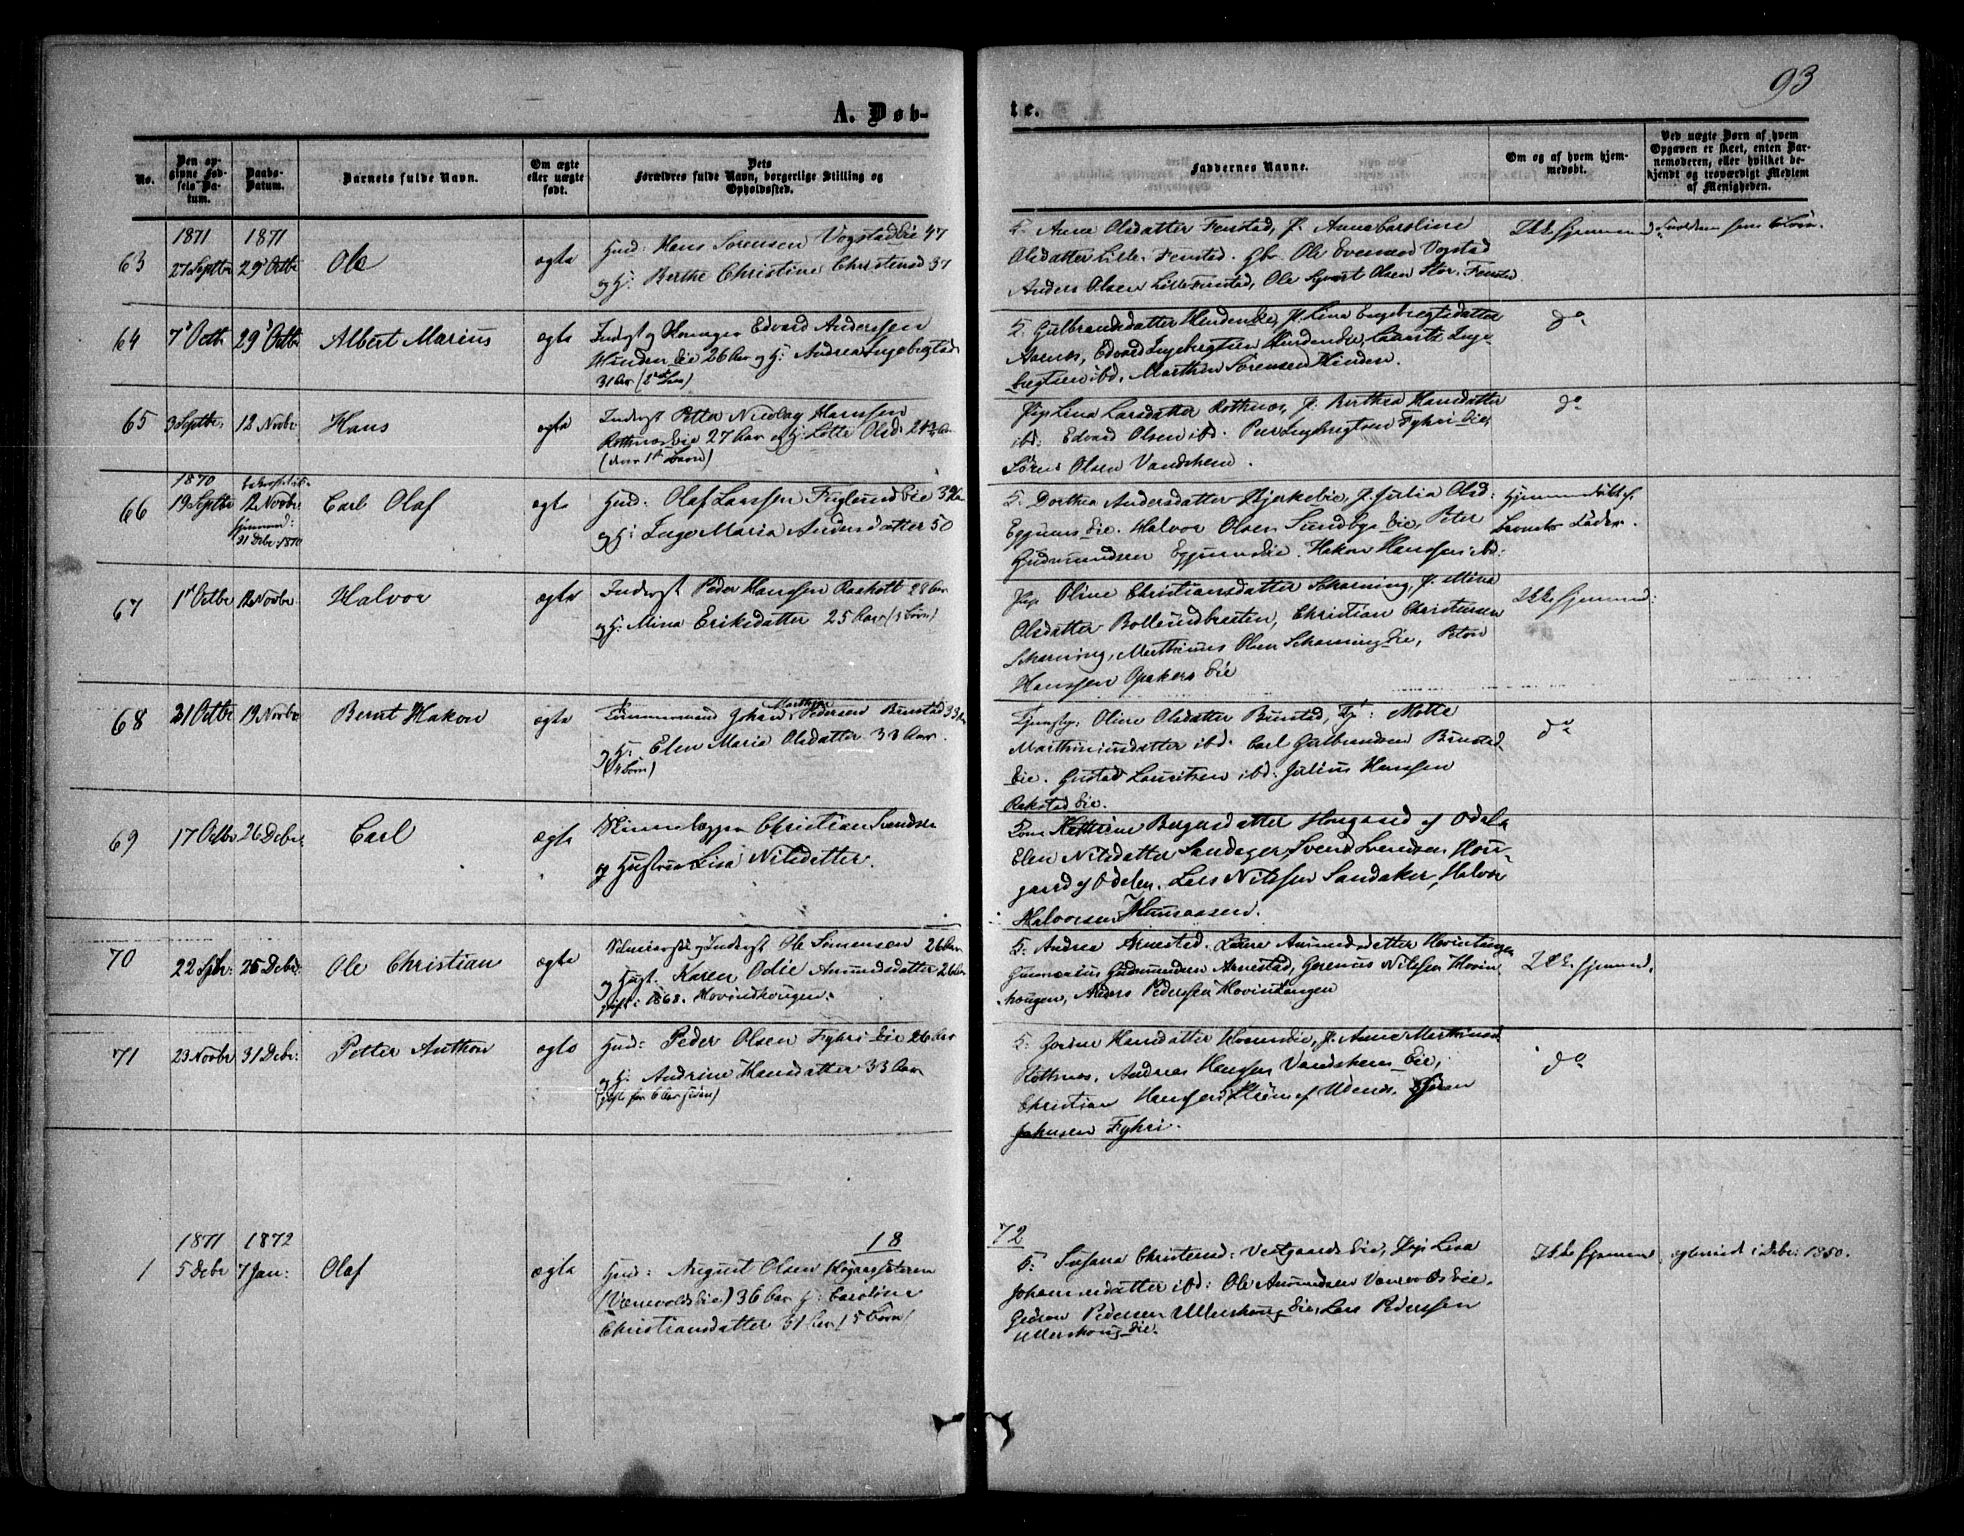 93
A. Døb-
te.
No.
Den op-
givne Fød-
sels-Da-
tum.
Daabs-
Datum.
Barnets fulde Navn.
Om ægte
eller uægte
født.
Dets
Forældres fulde Navn, borgerlige Stilling og
Opholdssted.
Faddernes Navne.
Om og af hvem hjem-
medøbt.
Ved uægte Børn af hvem
Opgaven er skeet, enten Bar-
nemoderen, eller hvilket be-
kjendt og troværdigt Medlem
af Menigheden.
1871 1871
63 27 Septbr 29 Octbr Ole ægte
Gmd: Hans Sørensen Vogstadeie 47
og H: Berthe Christine Christensd 37
G. Anne Olsdatter Fenstad, P. Anna Caroline
Olsdatter Lille-Fenstad. Gbr. Ole Evensen Vogstad
Anders Olsen Lille Fenstad, Ole Olsen Stor-Fenstad
Ikke hjemmed
64 7 Octb 29 Octbr Albert Marius ægte
Inderst og Edvard Anderssen
Hinden Eie 26 Aar og H: Andrea Ingebrigtsd
31 Aar
G. Gulbrandsdatter Hindeneie, P. Lina Engebregtsdatter
Aarnes, Edvard Ingebrigtsen Hindeneie, Laurits Inge-
bregtsen ibd, Marthin Sørensen Hinden.
do
65 3 Septbr 12 Novbr Hans ægte
Inderst Petter Nicolay Hanssen
Rothnes Eie 27 Aar og H: Lotte Olsd: 24 Aar
Pige Lina Larsdatter Rothnes, P. Berthea Hansdatter
ibd: Edvard Olsen ibd. Peer Ingebrigtsen Fyhri Eie,
Sørens Olsen Vandshem.
do
1870
66 19 Septbr 12 Novbr Carl Olaf ægte
hjemmed:
31 Debr: 1870
Gmd: Olaf Larssen Fuglundeie 32
og H: Inge Maria Andersdatter 50
G. Dorthea Andersdatter Bjerkeeie, P. Julia Olsd:
Eggums Eie. Halvor Olsen Sundbyeie, Peter
Gudmundsen Eggum Eie. Hakon Hanssen ibd:
Hjemmedøbt af
Barnets Fader.
67 1 Octbr 12 Novbr Halvor ægte
Inderst Peder Hanssen Raaholt 28 Aar
og H: Mina Eriksdatter 25 Aar
Pige Oline Christiansdatter Skarning, P. Mina
Olsdatter Bollundbraaten, Christian Christensen
Skarning, Mathinus Olsen Skarning Eie, Peter
Hanssen Opakers Eie
Ikke hjemmed:
68 31 Octbr 19 Novbr Bernt Hakon ægte
Tømmermand Johan Mathias Pedersen Brustad 33
og H: Elen Maria Olsdatter 33 Aar.
(4 Børn)
Oline Olsdatter Brustad,
Marthiniusdatter ibd. Carl Gulbrandsen Brustad-
Eie. Gustad Lauritsen ibd: Julius Hansen
Rakstad Eie.
do
69 17 Octbr 26 Debr Carl ægte
Skindlapper Christian Svendsen
og Hustru Lisa Nilsdatter.
Kone Kathrine Bersdatter Hougaard af Odalen
Elen Nilsdatter Sandager, Svend Svendsen Hou-
gaard af Odalen. Lars Nilssen Sandaker, Halvor
Halvorsen Hemaasen.
70 22 26 Debr: Ole Christian ægte
og Inderst Ole Simensen 26 Aar
og Hust. Karen Odie Amundsdatter 26 Aar
gift: 1868. Hovindhougen.
G. Andrea Arnestad. Laure Amundsdatter Hovinhougen
Gunnarius Gudmundsen Arnestad, Gerenus Nilssen Hovin
hougen, Anders Pederssen Hovinhougen
Ikke hjemmed.
71 23 Novbr 31 Debr: Petter Anthon ægte
Gmd: Peder Olsen Fyhri Eie 26 Aar
og H: Andrine Hansdatter 33 Aar
(gifte for 6 Aar siden)
G: Hansdatter, P. Anne Mathisd
Rotnes. Andreas Hansen Vandshem Eie,
Christian Hanssen Strøm af Udenes.
Johnsen Fyhri.
do
18 72
1871 1872
1 5 Debr 7 Jan: Olaf ægte
Gmd: August Olsen Hogaasæteren
(Vænevoldseie) 36 Aar H: Caroline
Christiansdatter 31 Aar (5 Børn)
G: Susana Christensd: Vestgaards Eie, Pige Lisa
Johannesdatter ibd: Ole Amundsen Vænevolds Eie.
Gideon Pedersen Ullershoug Eie, Lars Pederssen
Ullershoug Eie.
Ikke hjemmed
i Debr: 1850.